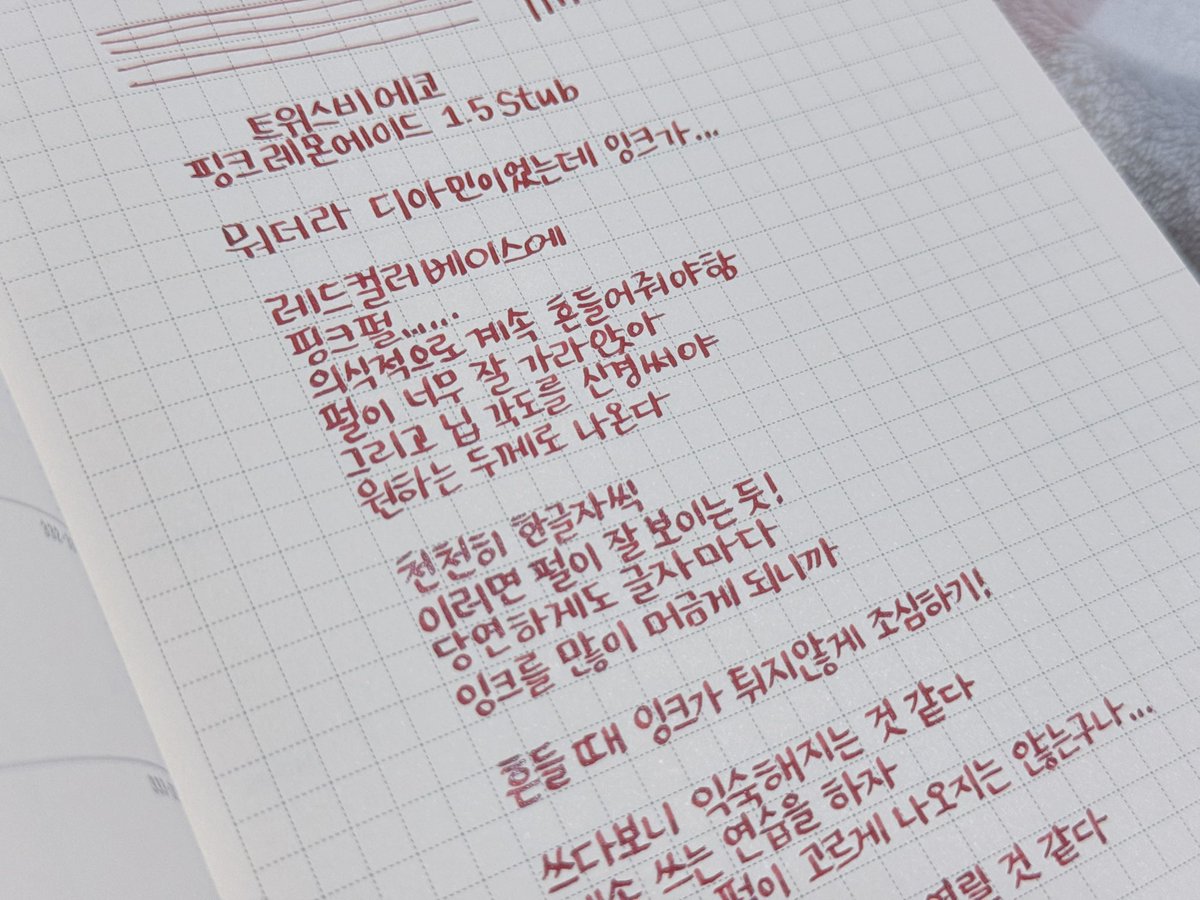 트위스비 에코
핑크레몬에이드 1.5 Stub
뭐더라 디아민이었는데 잉크가...
레드컬러 베이스에
핑크펄......
의식적으로 계속 흔들어줘야함
펄이 너무 잘 가라앉아
그리고 닙 각도를 신경써야
원하는 두께로 나온다
천천히 한글자씩
이러면 펄이 잘 보이는 듯!
당연하게도 글자마다
잉크를 많이 머금게 되니까
흔들 때 잉크가 튀지않게 조심하기!
쓰다보니 익숙해지는 것 같다
쓰는 연습을 하자
펄이 고르게 나오지는 않는구나...
것 같다